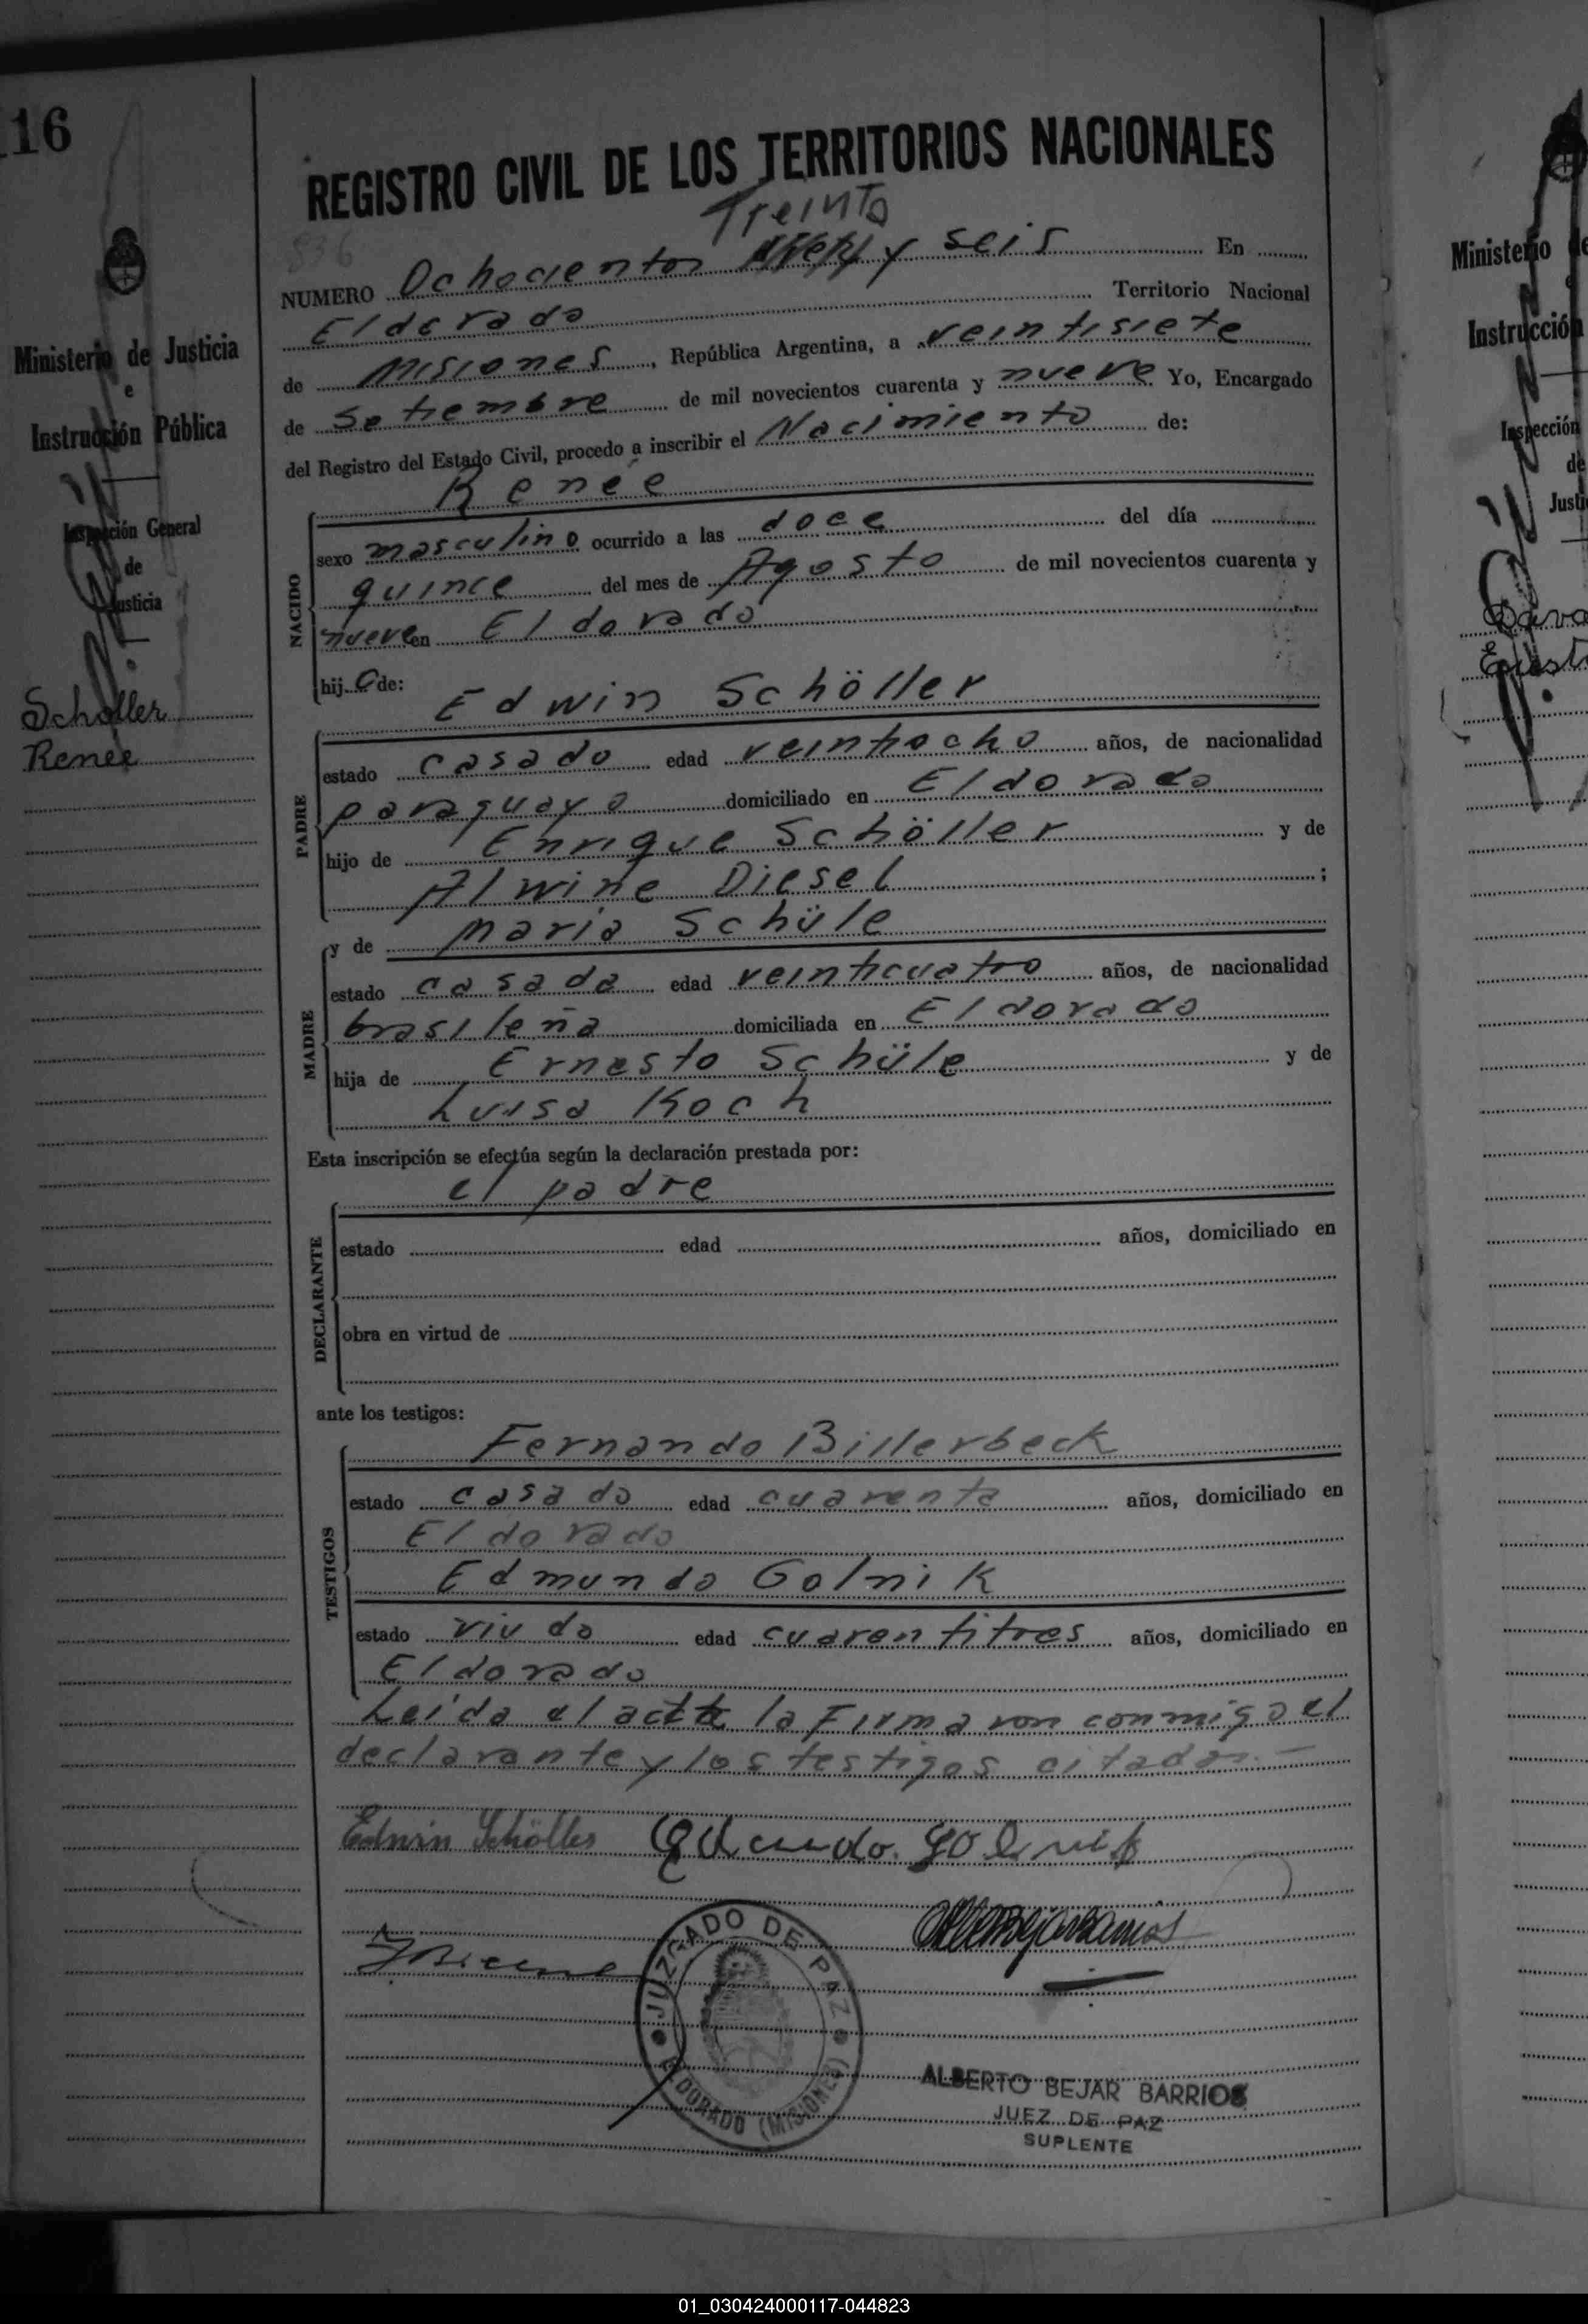 116
REGISTRO CIVIL DE LOS TERRITORIOS NACIONALES
Treinta
836
NUMERO Ochocientos y seis En
Eldorado Territorio Nacional
de Misiones, República Argentina, a veintisiete
de setiembre de mil novecientos cuarenta y nueve Yo, Encargado
del Registro del Estado Civil, procedo a inscribir el Nacimiento de:
Renée
NACIDO
sexo masculino ocurrido a las doce del día
quince del mes de Agosto de mil novecientos cuarenta y
nueve en Eldorado
hij o de:
Edwin Schöller
PADRE
estado casado edad veintiocho años, de nacionalidad
paraguayo domiciliado en Eldorado
hijo de Enrique Schöller y de
Alwine Diesel ;
MADRE
y de Maria Schüle
estado casada edad veinticuatro años, de nacionalidad
brasileña domiciliada en Eldorado
hija de Ernesto Schüle y de
Luisa Koch
Esta inscripción se efectúa según la declaración prestada por:
el padre
DECLARANTE
estado edad años, domiciliado en
obra en virtud de
ante los testigos:
Fernando Billerbeck
TESTIGOS
estado casado edad cuarenta años, domiciliado en
Eldorado
Edmundo Golnik
estado viudo edad cuarentitres años, domiciliado en
Eldorado
Leída el acta la Firmaron conmigo el
declarante y los testigos citados.—
Edwin Schöller Edmundo Golnik
JUZGADO DE PAZ
ELDORADO (MISIONES)
ALBERTO BEJAR BARRIOS
JUEZ DE PAZ
SUPLENTE
Ministerio de Justicia
e
Instrucción Pública
Inspección General
de
Justicia
Schöller
Renee
Ministerio de
Instrucción
Inspección
de
Justi
01_030424000117-044823